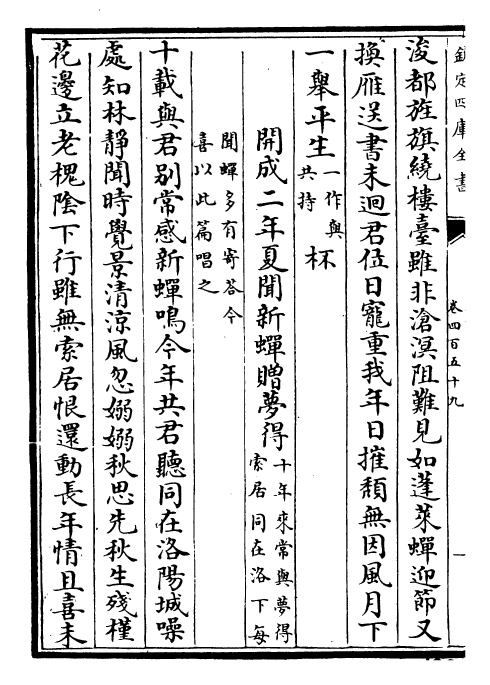 欽定四庫全書
卷四百五十九
一
浚都旌旗繞樓臺雖非滄溟阻難見如蓬萊蟬迎節又
換雁送書未迴君位日寵重我年日摧頹無因風月下
一舉平生一作與共持杯
開成二年夏聞新蟬贈夢得十年來常與夢得索居同在洛下每
聞蟬多有寄答今喜以此篇唱之
十載與君別常感新蟬鳴今年共君聽同在洛陽城噪
處知林靜聞時覺景清涼風忽嫋嫋秋思先秋生殘槿
花邊立老槐陰下行雖無索居恨還動長年情且喜未